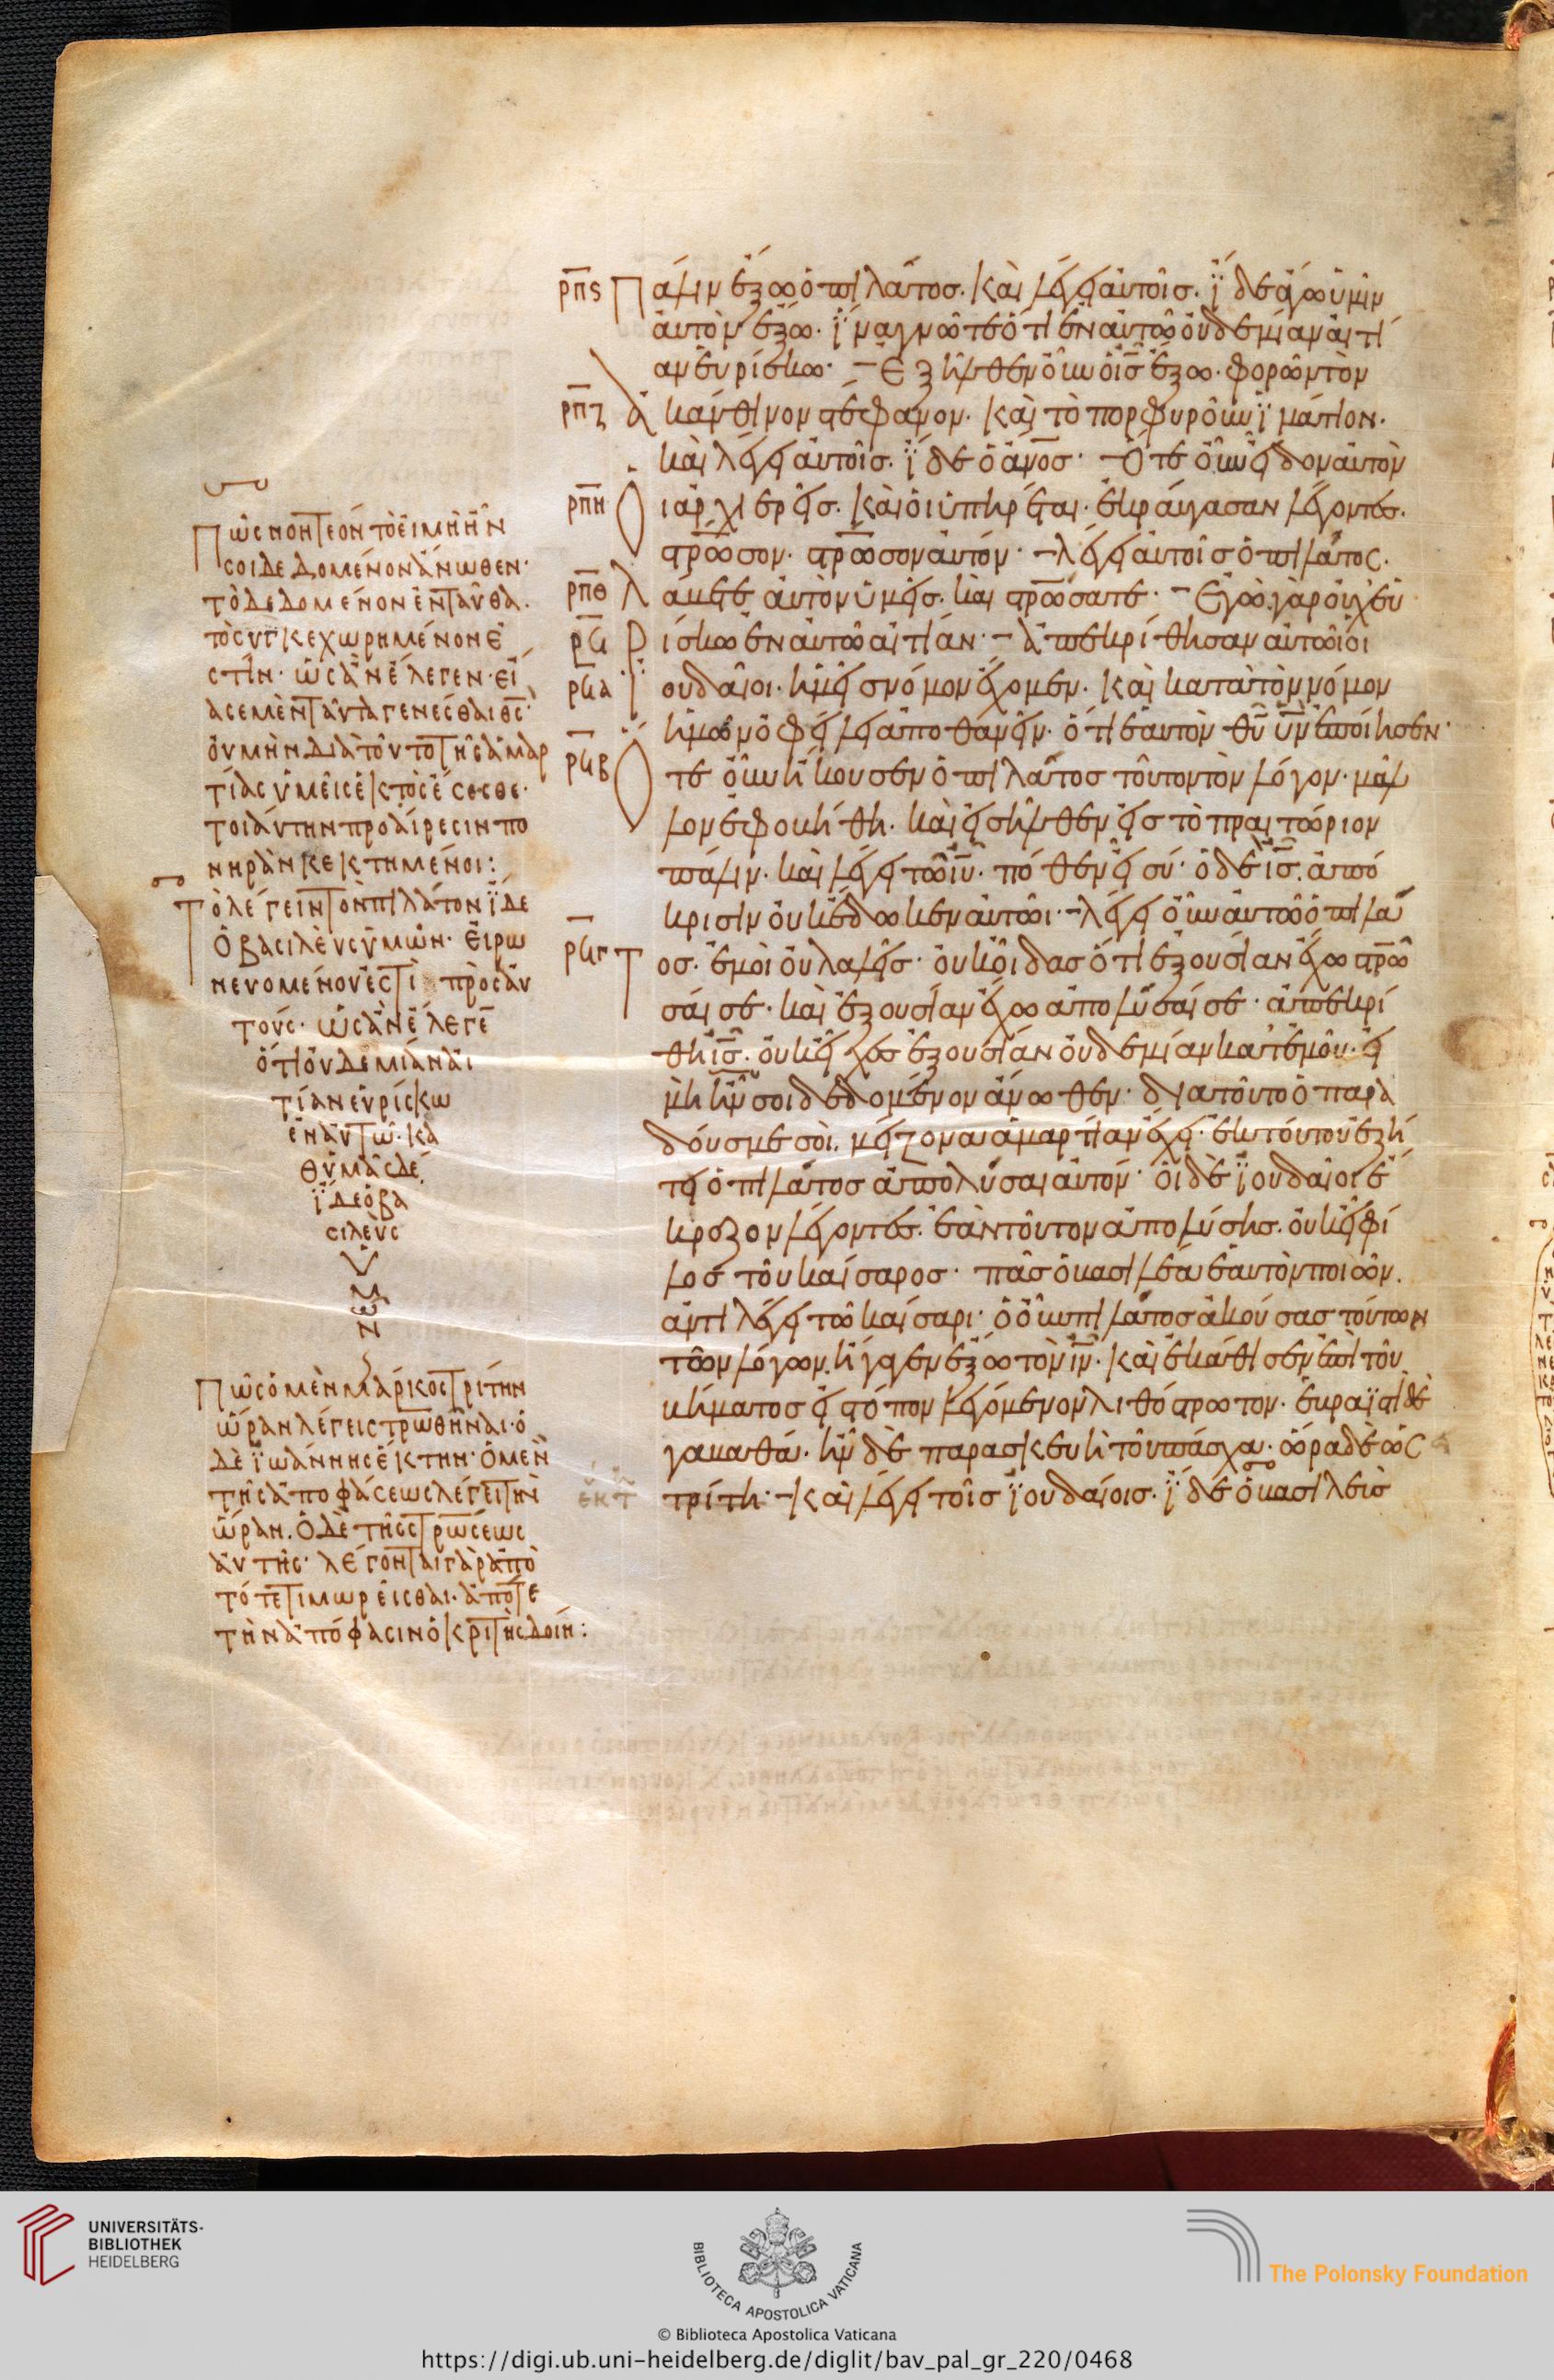 ρπς Πάλιν ἔξω ὁ πιλάτος. καὶ λέγει αὐτοῖς. ἴδε ἄγω ὑμῖν
αὐτὸν ἔξω. ἵνα γνῶτε ὅτι ἐν αὐτῶ οὐδεμίαν αἰτί
αν εὑρίσκω· Ἐξῆλθεν οὖν ὁ ις̅ ἔξω. φορῶν τὸν
ρπζ ἀκάνθινον στέφανον. καὶ τὸ πορφυροῦν ἱμάτιον.
καὶ λέγει αὐτοῖς. ἴδε ὁ ἄνο̅ς· Ὅτε οὖν εἶδον αὐτὸν
ρπη Οἱ ἀρχιερεῖς. καὶ οἱ ὑπηρέται. ἐκραύγασαν λέγοντες.
στρ̅ωσον. στρ̅ωσον αὐτόν· λέγει αὐτοῖς ὁ πιλάτος.
ρπθ Λάβετε αὐτὸν ὑμεῖς. καὶ στρ̅ώσατε· Ἐγὼ γὰρ οὐχ εὑ
ρϟ Ρίσκω ἐν αὐτῶ αἰτίαν· ἀπεκρίθησαν αὐτῶ οἱ
ρϟα Ἰουδαῖοι. ἡμεῖς νόμον ἔχομεν. καὶ κατὰ τὸν νόμον
ἡμῶν ὀφείλει ἀποθανεῖν. ὅτι ἑαυτὸν θυ̅ υν̅ ἐποίησεν·
ρϟβ Ὅτε οὖν ἤκουσεν ὁ πιλάτος τοῦτον τὸν λόγον. μᾶλ
λον ἐφοβήθη. καὶ εἰσῆλθεν εἰς τὸ πραιτώριον
πάλιν. καὶ λέγει τῶ ιυ̅. πόθεν εἶ σύ· ὁ δὲ ις̅. ἀπό
κρισιν οὐκ ἔδωκεν αὐτῶι· λέγει οὖν αὐτῶ ὁ πιλά
ρϟγ Τος. ἐμοὶ οὐ λαλεῖς. οὐκ οἶδας ὅτι ἐξουσίαν ἔχω στρ̅ῶ
σαί σε. καὶ ἐξουσίαν ἔχω ἀπολῦσαί σε. ἀπεκρί
θη ις̅. οὐκ εἶχες ἐξουσίαν οὐδεμίαν κατ' ἐμοῦ. εἰ
μὴ ἦν σοι δεδομένον ἄνωθεν· διατοῦτο ὁ παρα
δούς με σοὶ. μείζονα ἁμαρτίαν ἔχει· ἐκ τούτου ἐζή
τει ὁ πιλάτος ἀπολῦσαι αὐτόν· οἱ δὲ ἰουδαῖοι ἔ
κραζον λέγοντες. ἐὰν τοῦτον ἀπολύσης. οὐκ εἶ φί
λος τοῦ καίσαρος· πᾶς ὁ βασιλέα ἑαυτὸν ποιῶν.
ἀντιλέγει τῶ καίσαρι· ὁ οὖν πιλάτος ἀκούσας τούτων
τῶν λόγων. ἤγαγεν ἔξω τὸν ιν̅. καὶ ἐκάθισεν ἐπὶ τοῦ
βήματος εἰς τόπον λεγόμενον λιθόστρωτον. ἑβραϊστὶ δὲ
γαβαθά. ἦν δὲ παρασκευὴ τοῦ πάσχα. ὥρα δὲ ὡς
ἕκτ τρίτη· καὶ λέγει τοῖς ἰουδαίοις. ἴδε ὁ βασιλεὺς
Πῶς νοητέον τὸ εἰ μὴ ἦν
σοι δεδομένον ἄνωθεν·
τὸ δεδομένον ἐνταῦθα.
τὸ συγκεχωρημένον ἐ
στίν· ὡσανεὶ ἔλεγεν· εἴ
ασε μὲν ταῦτα γενέσθαι θς̅·
οὐ μὴν διὰ τοῦτο τῆς ἁμαρ
τίας ὑμεῖς ἐκτὸς ἔσεσθε·
τοιαύτην προαίρεσιν πο
νηρὰν κεκτημένοι:
Τὸ λέγειν τὸν πιλάτον ἴδε
ὁ βασιλεὺς ὑμῶν· εἰρω
νευομένου ἐστὶ πρὸς αὐ
τούς· ὡσανεὶ ἔλεγε
ὅτι οὐδεμίαν αἰ
τίαν εὑρίσκω
ἐν αὐτῶ· κα
θ' ὑμᾶς δέ
ἴδε ὁ βα
σιλεὺς
ὑμῶν
Πῶς ὁ μὲν μάρκος τρίτην
ὥραν λέγει στρωθῆναι· ὁ
δὲ ἰωάννης ἕκτην· ὁ μὲν
τῆς ἀποφάσεως λέγει τὴν
ὥραν. ὁ δὲ τῆς στρώσεως
αὐτῆς· λέγονται γὰρ ἀπὸ
τότε τιμωρεῖσθαι. ἀπότε
τὴν ἀπόφασιν ὁ κριτὴς δοίη:
UNIVERSITÄTS-
BIBLIOTHEK
HEIDELBERG
BIBLIOTECA APOSTOLICA VATICANA
The Polonsky Foundation
© Biblioteca Apostolica Vaticana
https://digi.ub.uni-heidelberg.de/diglit/bav_pal_gr_220/0468